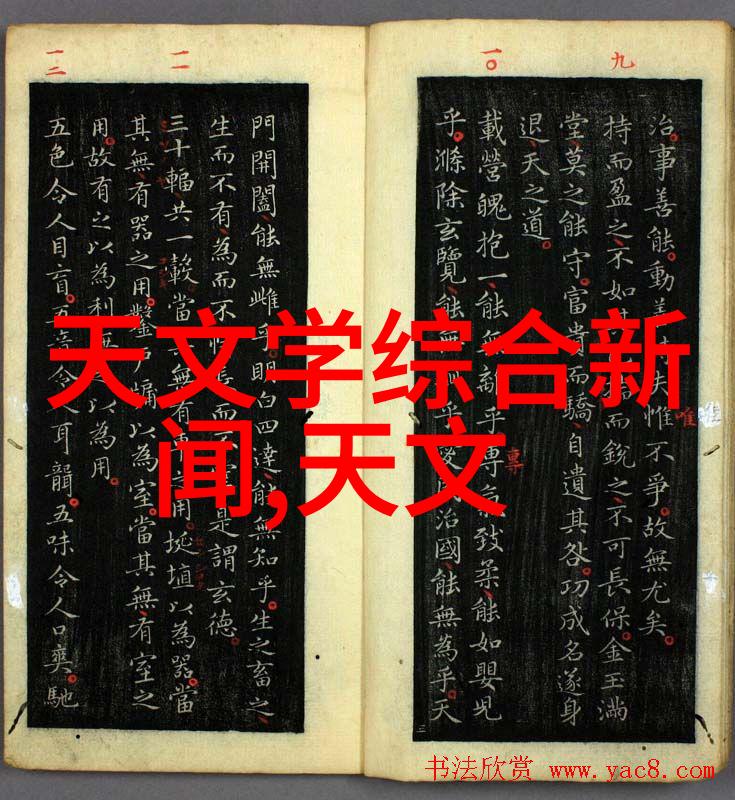 九
一〇
一一
一二
治。事善能。動善夫惟不爭。故無尤矣。
唯
持而盈之、不如而銳之、不可長保。金玉滿
堂、莫之能守。富貴而驕、自遺其咎。功成名遂身
退、天之道。
載營魄抱一、能無離乎。專致柔、能如嬰兒
專
乎。滌除玄覽、能無乎。愛治國、能無為乎。天
門開闔、能無雌乎。明白四達、能無知乎。生之畜之、
生而不有、為而不而不是謂玄德。
三十輻、共一轂、當無有用。埏埴以為器、當
其無、有器之用。鑿戶牖以為室。當其無、有室之
用。故有之以為利之以為用。
五色令人目盲。五音令人耳聾。五味令人口爽。馳
天文学综合新
闻,天文
书法欣赏 www.yac8.com